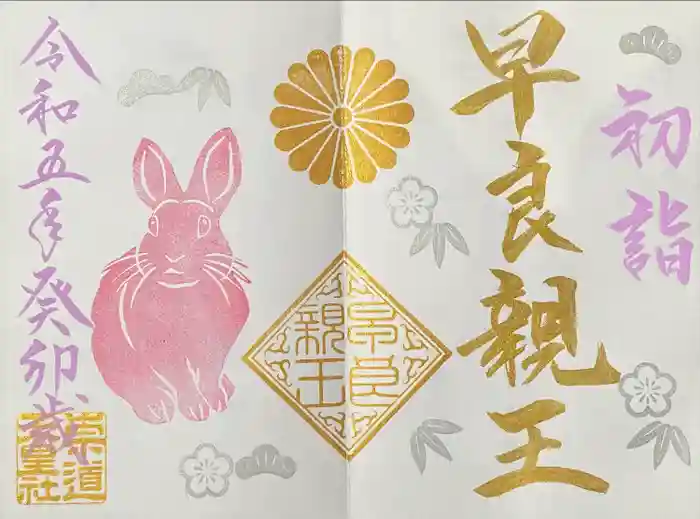 初詣
早良親王
早良親王
令和五年癸卯歳
崇道天皇社